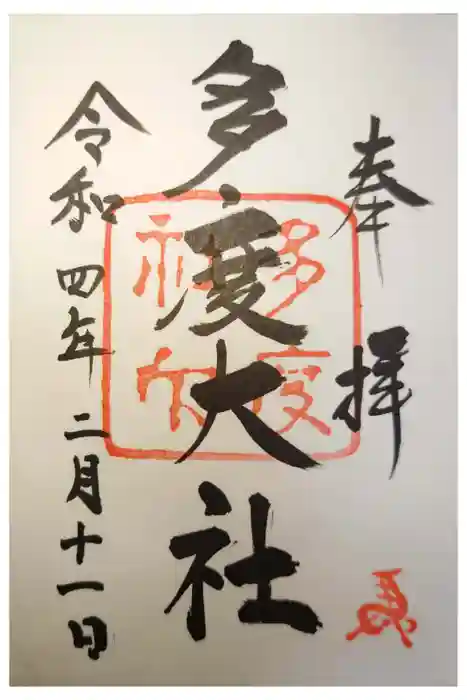 奉拝
多度大社
多度
神印
令和四年二月十一日
馬